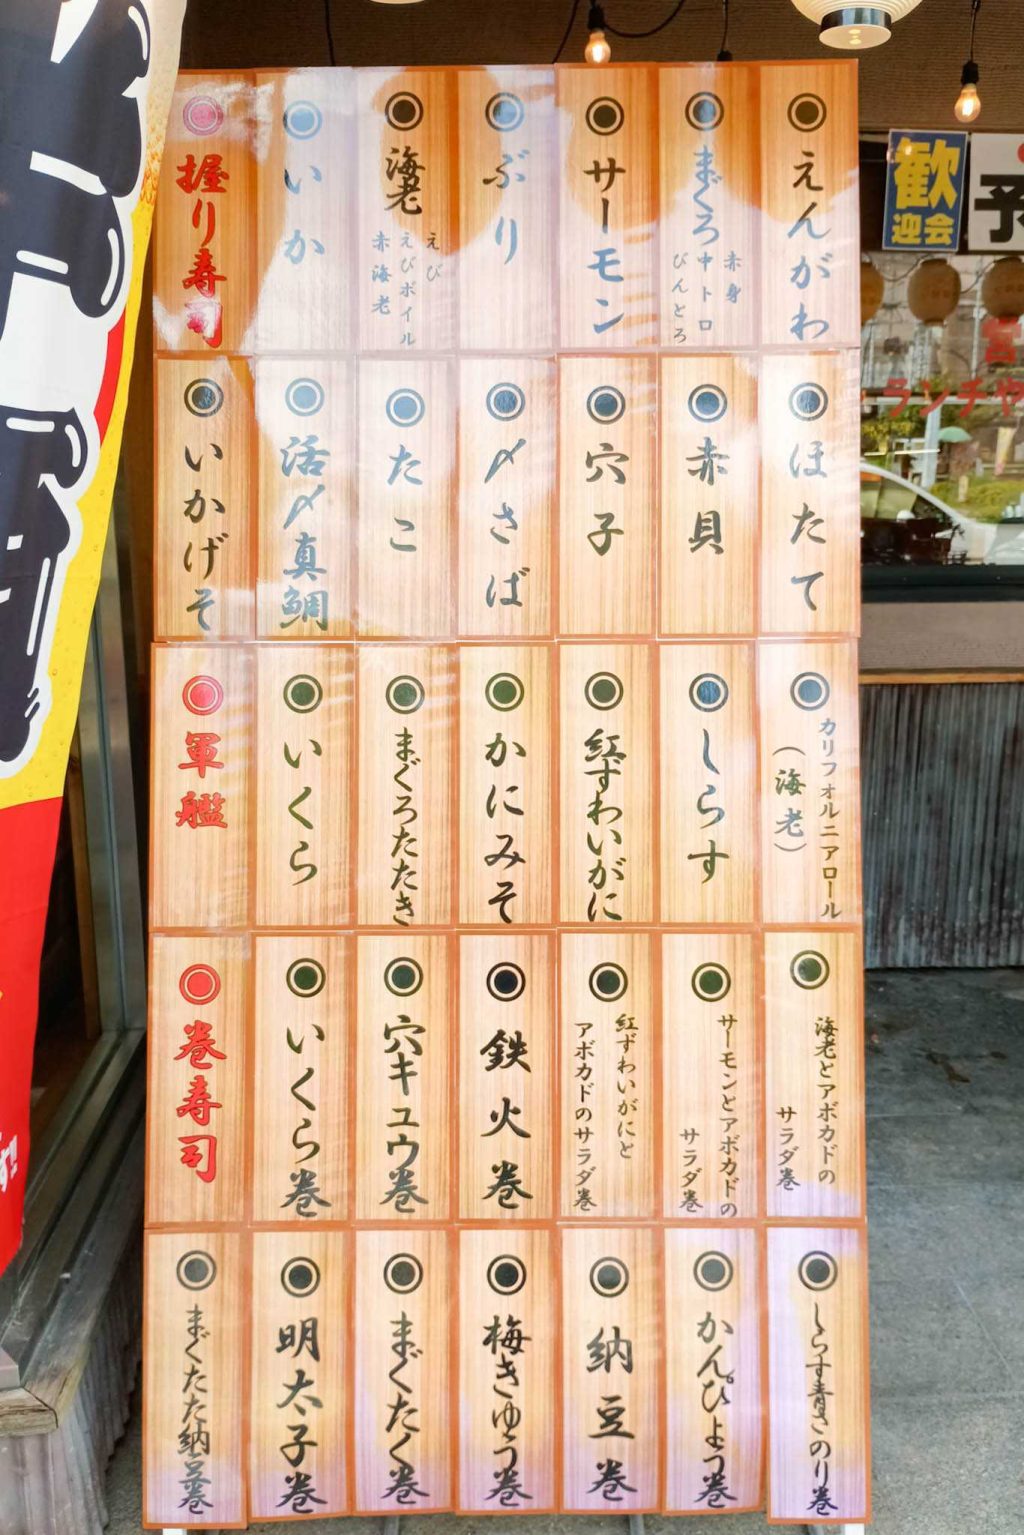 握り寿司
いか
海老
えび
えびボイル
赤海老
ぶり
サーモン
まぐろ
赤身
中トロ
びんとろ
えんがわ
いかげそ
活〆真鯛
たこ
〆さば
穴子
赤貝
ほたて
軍艦
いくら
まぐろたたき
かにみそ
紅ずわいがに
しらす
カリフォルニアロール
(海老)
巻寿司
いくら巻
穴キュウ巻
鉄火巻
紅ずわいがにと
アボカドのサラダ巻
サーモンとアボカドの
サラダ巻
海老とアボカドの
サラダ巻
まぐたた納豆巻
明太子巻
まぐたく巻
梅きゅう巻
納豆巻
かんぴょう巻
しらす青さのり巻
歓
迎会
予
ランチや